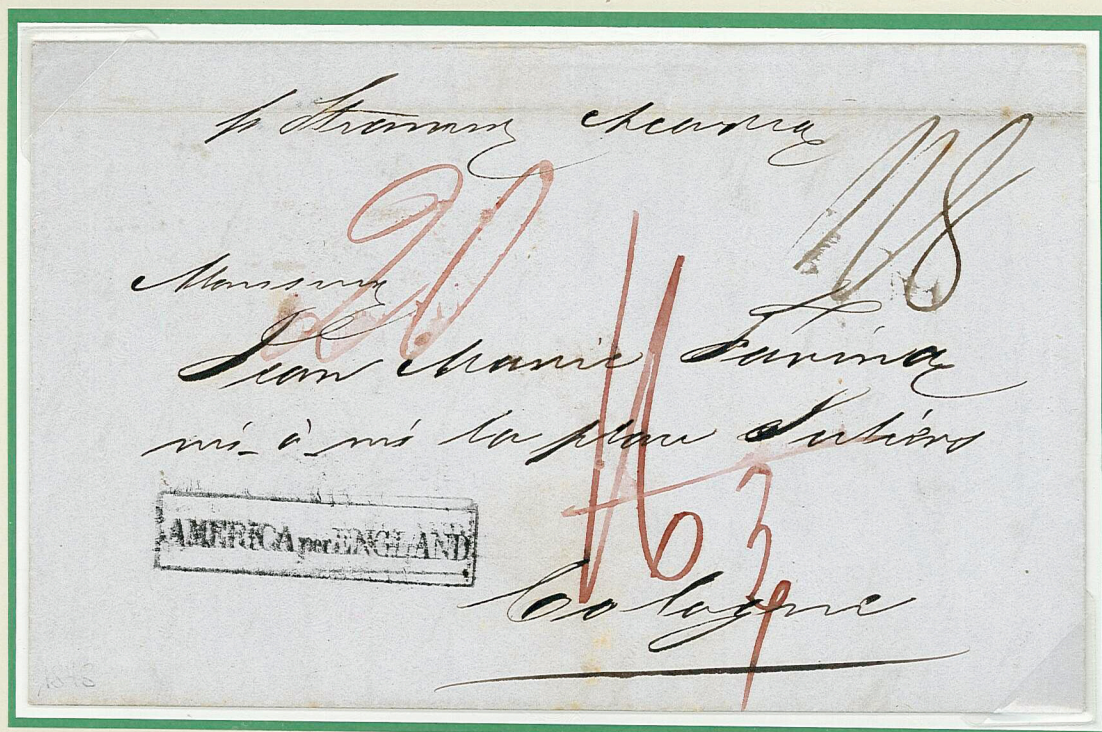 p Steamer Acadia
118
20
Monsieur
Jean Marie Farina
vis-à-vis la place Juliers
16
3
AMERICA per ENGLAND
Cologne